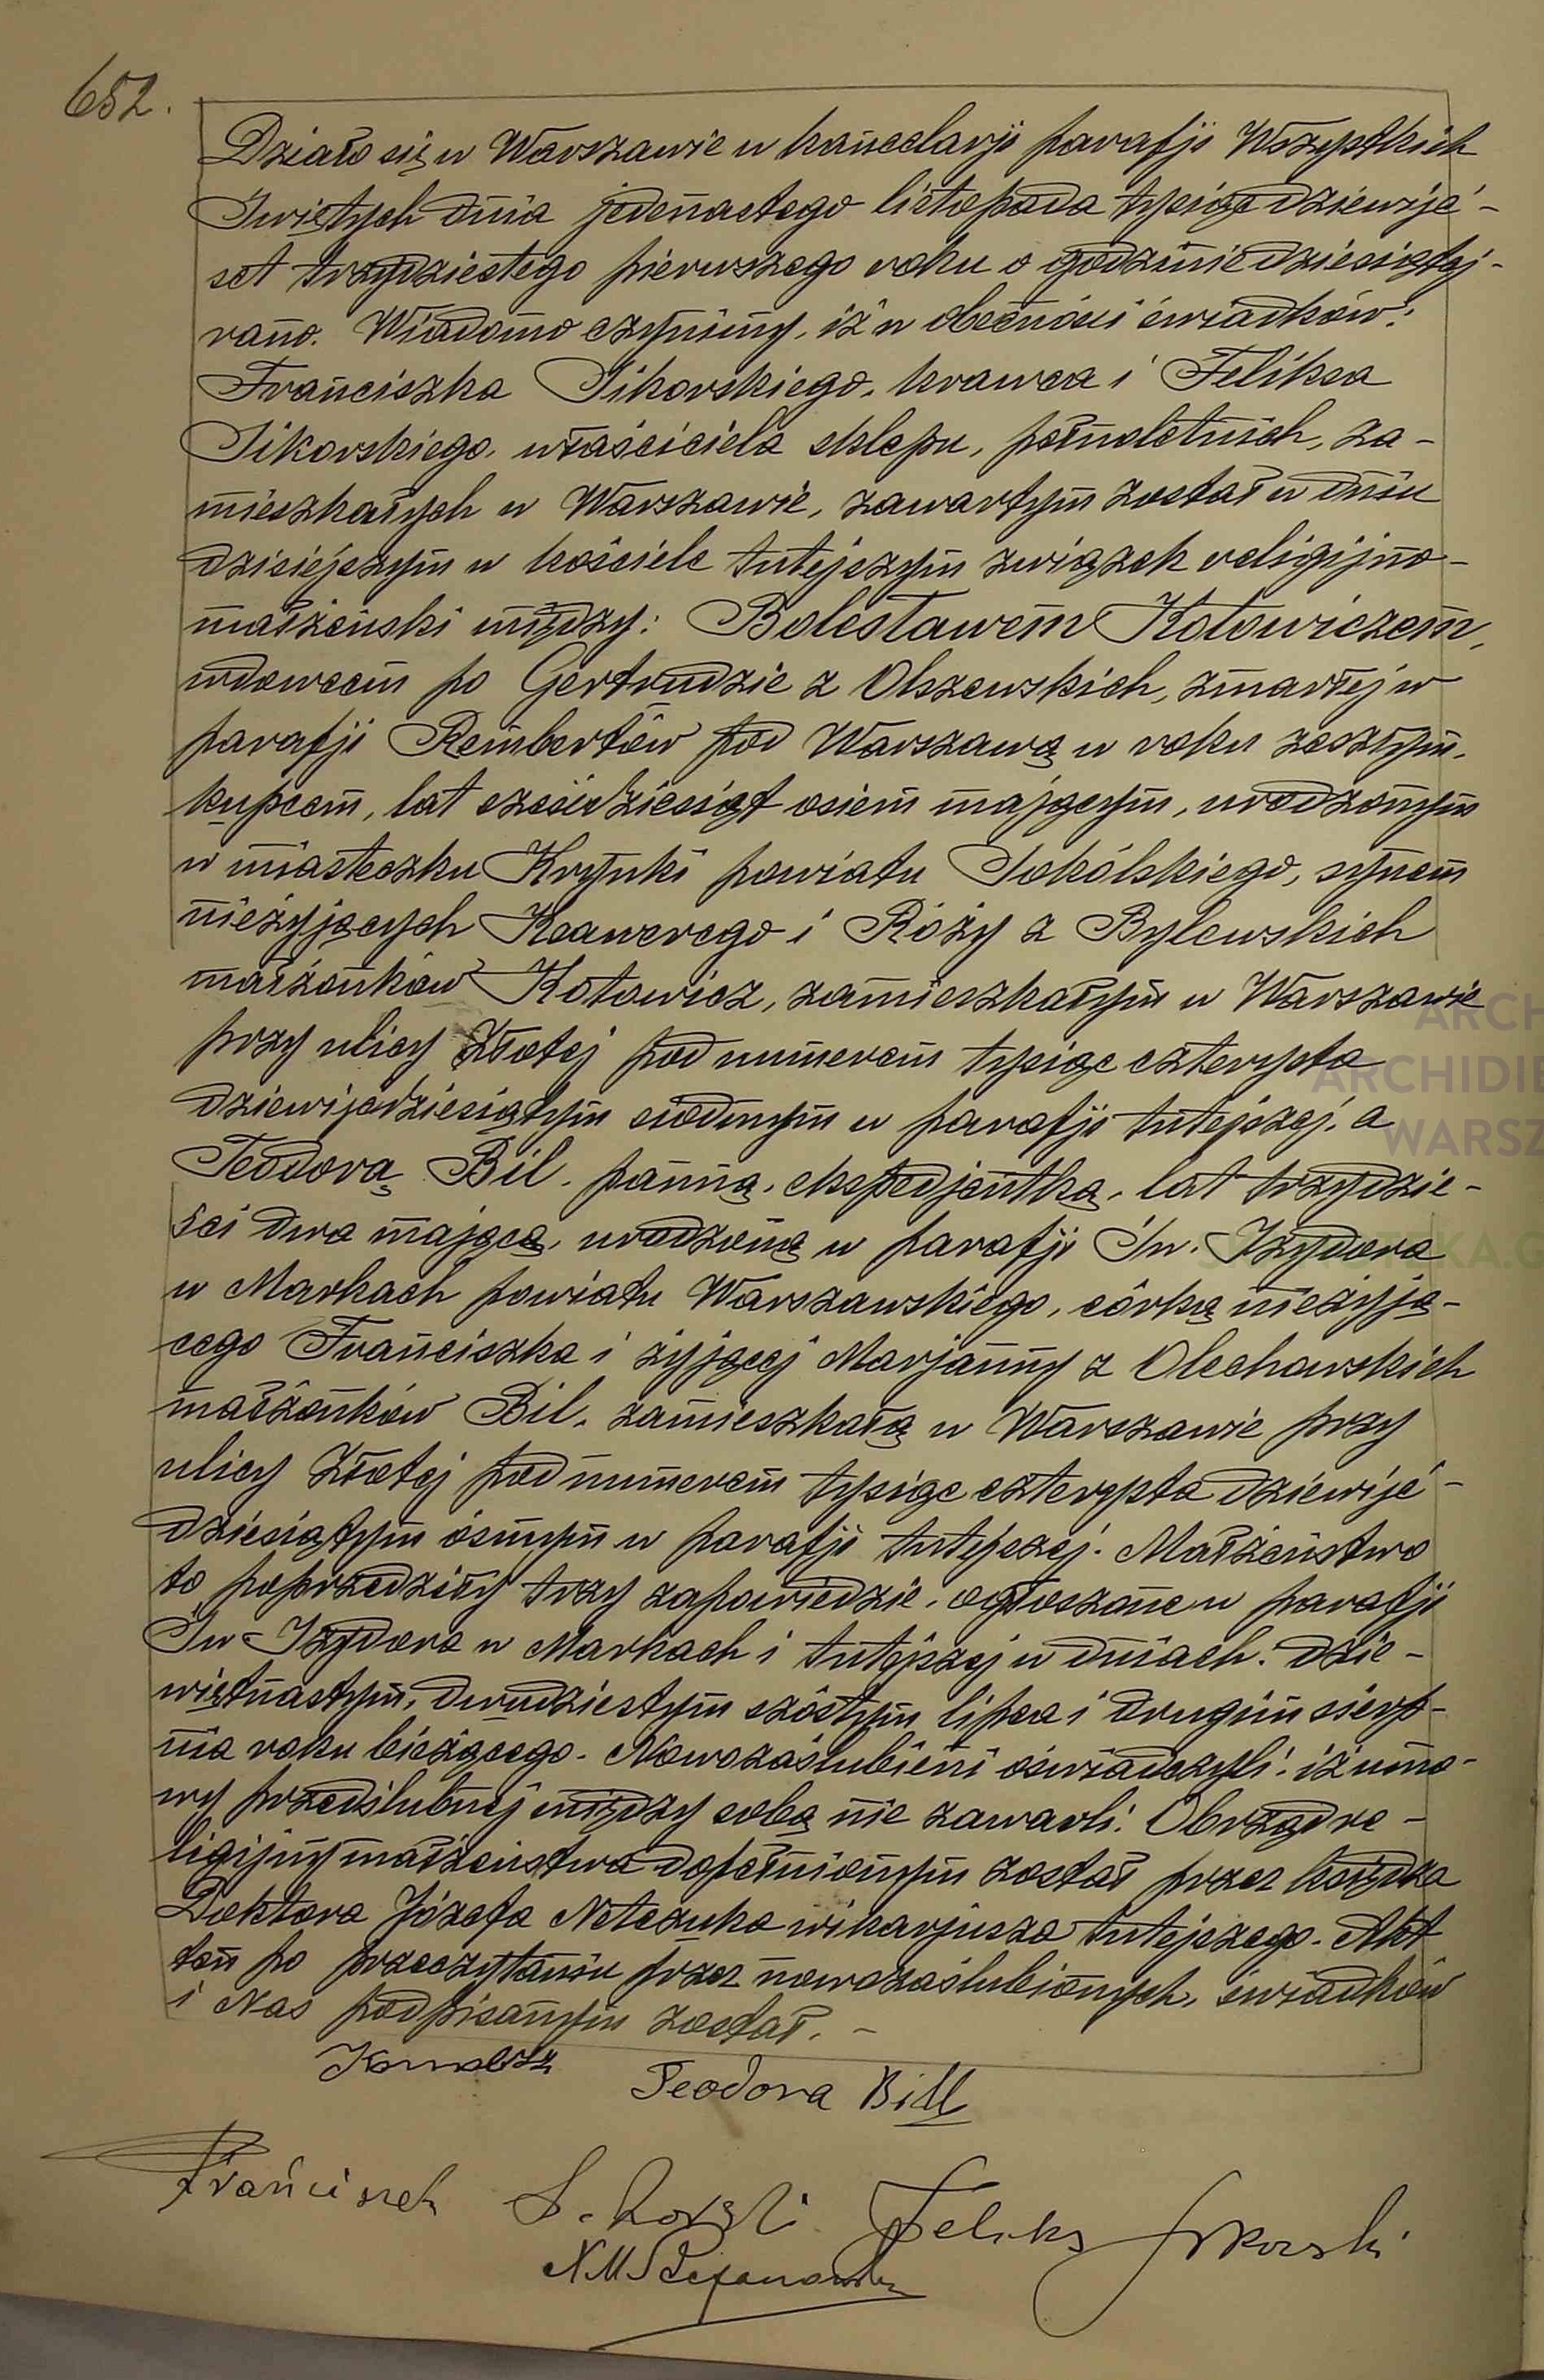 652.
Działo się w Warszawie w kancelarji parafji Wszystkich
Świętych dnia jedenastego listopada tysiąc dziewięć-
set trzydziestego pierwszego roku o godzinie dziesiątej-
rano. Wiadomo czynimy, iż w obecności świadków:
Franciszka Sikorskiego, krawca i Feliksa
Sikorskiego, właściciela sklepu, pełnoletnich, za-
mieszkałych w Warszawie, zawartym został w dniu
dzisiejszym w kościele tutejszym związek religijno-
małżeński między: Bolesławem Kotowiczem,
wdowcem po Gertrudzie z Olszewskich, zmarłej w
parafji Rembertów pod Warszawą w roku zeszłym,
kupcem, lat sześćdziesiąt osiem mającym, urodzonym
w miasteczku Krynki powiatu Sokólskiego, synem
nieżyjących Ksawerego i Róży z Bylewskich
małżonków Kotowicz, zamieszkałym w Warszawie
przy ulicy Złotej pod numerem tysiąc czterysta
dziewięćdziesiątym siódmym w parafji tutejszej, a
Teodorą Bil, panną, ekspedjentką, lat trzydzie-
ści dwa mającą, urodzoną w parafji Św. Izydora
w Markach powiatu Warszawskiego, córką nieżyją-
cego Franciszka i żyjącej Marjanny z Olechowskich
małżonków Bil, zamieszkałą w Warszawie przy
ulicy Złotej pod numerem tysiąc czterysta dziewięć-
dziesiątym ósmym w parafji tutejszej. Małżeństwo
to poprzedziły trzy zapowiedzie, ogłoszone w parafji
Św. Izydora w Markach i tutejszej w dniach: dzie-
więtnastym, dwudziestym szóstym lipca i drugim sierp-
nia roku bieżącego. Nowozaślubieni oświadczyli, iż umo-
wy przedślubnej między sobą nie zawarli. Obrzęd re-
ligijny małżeństwa dopełnionym został przez księdza
Doktora Józefa Netczuka wikarjusza tutejszego. Akt
ten po przeczytaniu przez nowozaślubionych, świadków
i Nas podpisanym został. -
Teodora Bill
Franciszek Sikorski Feliks Sikorski
ARCH
ARCHIDIE
WARSZ